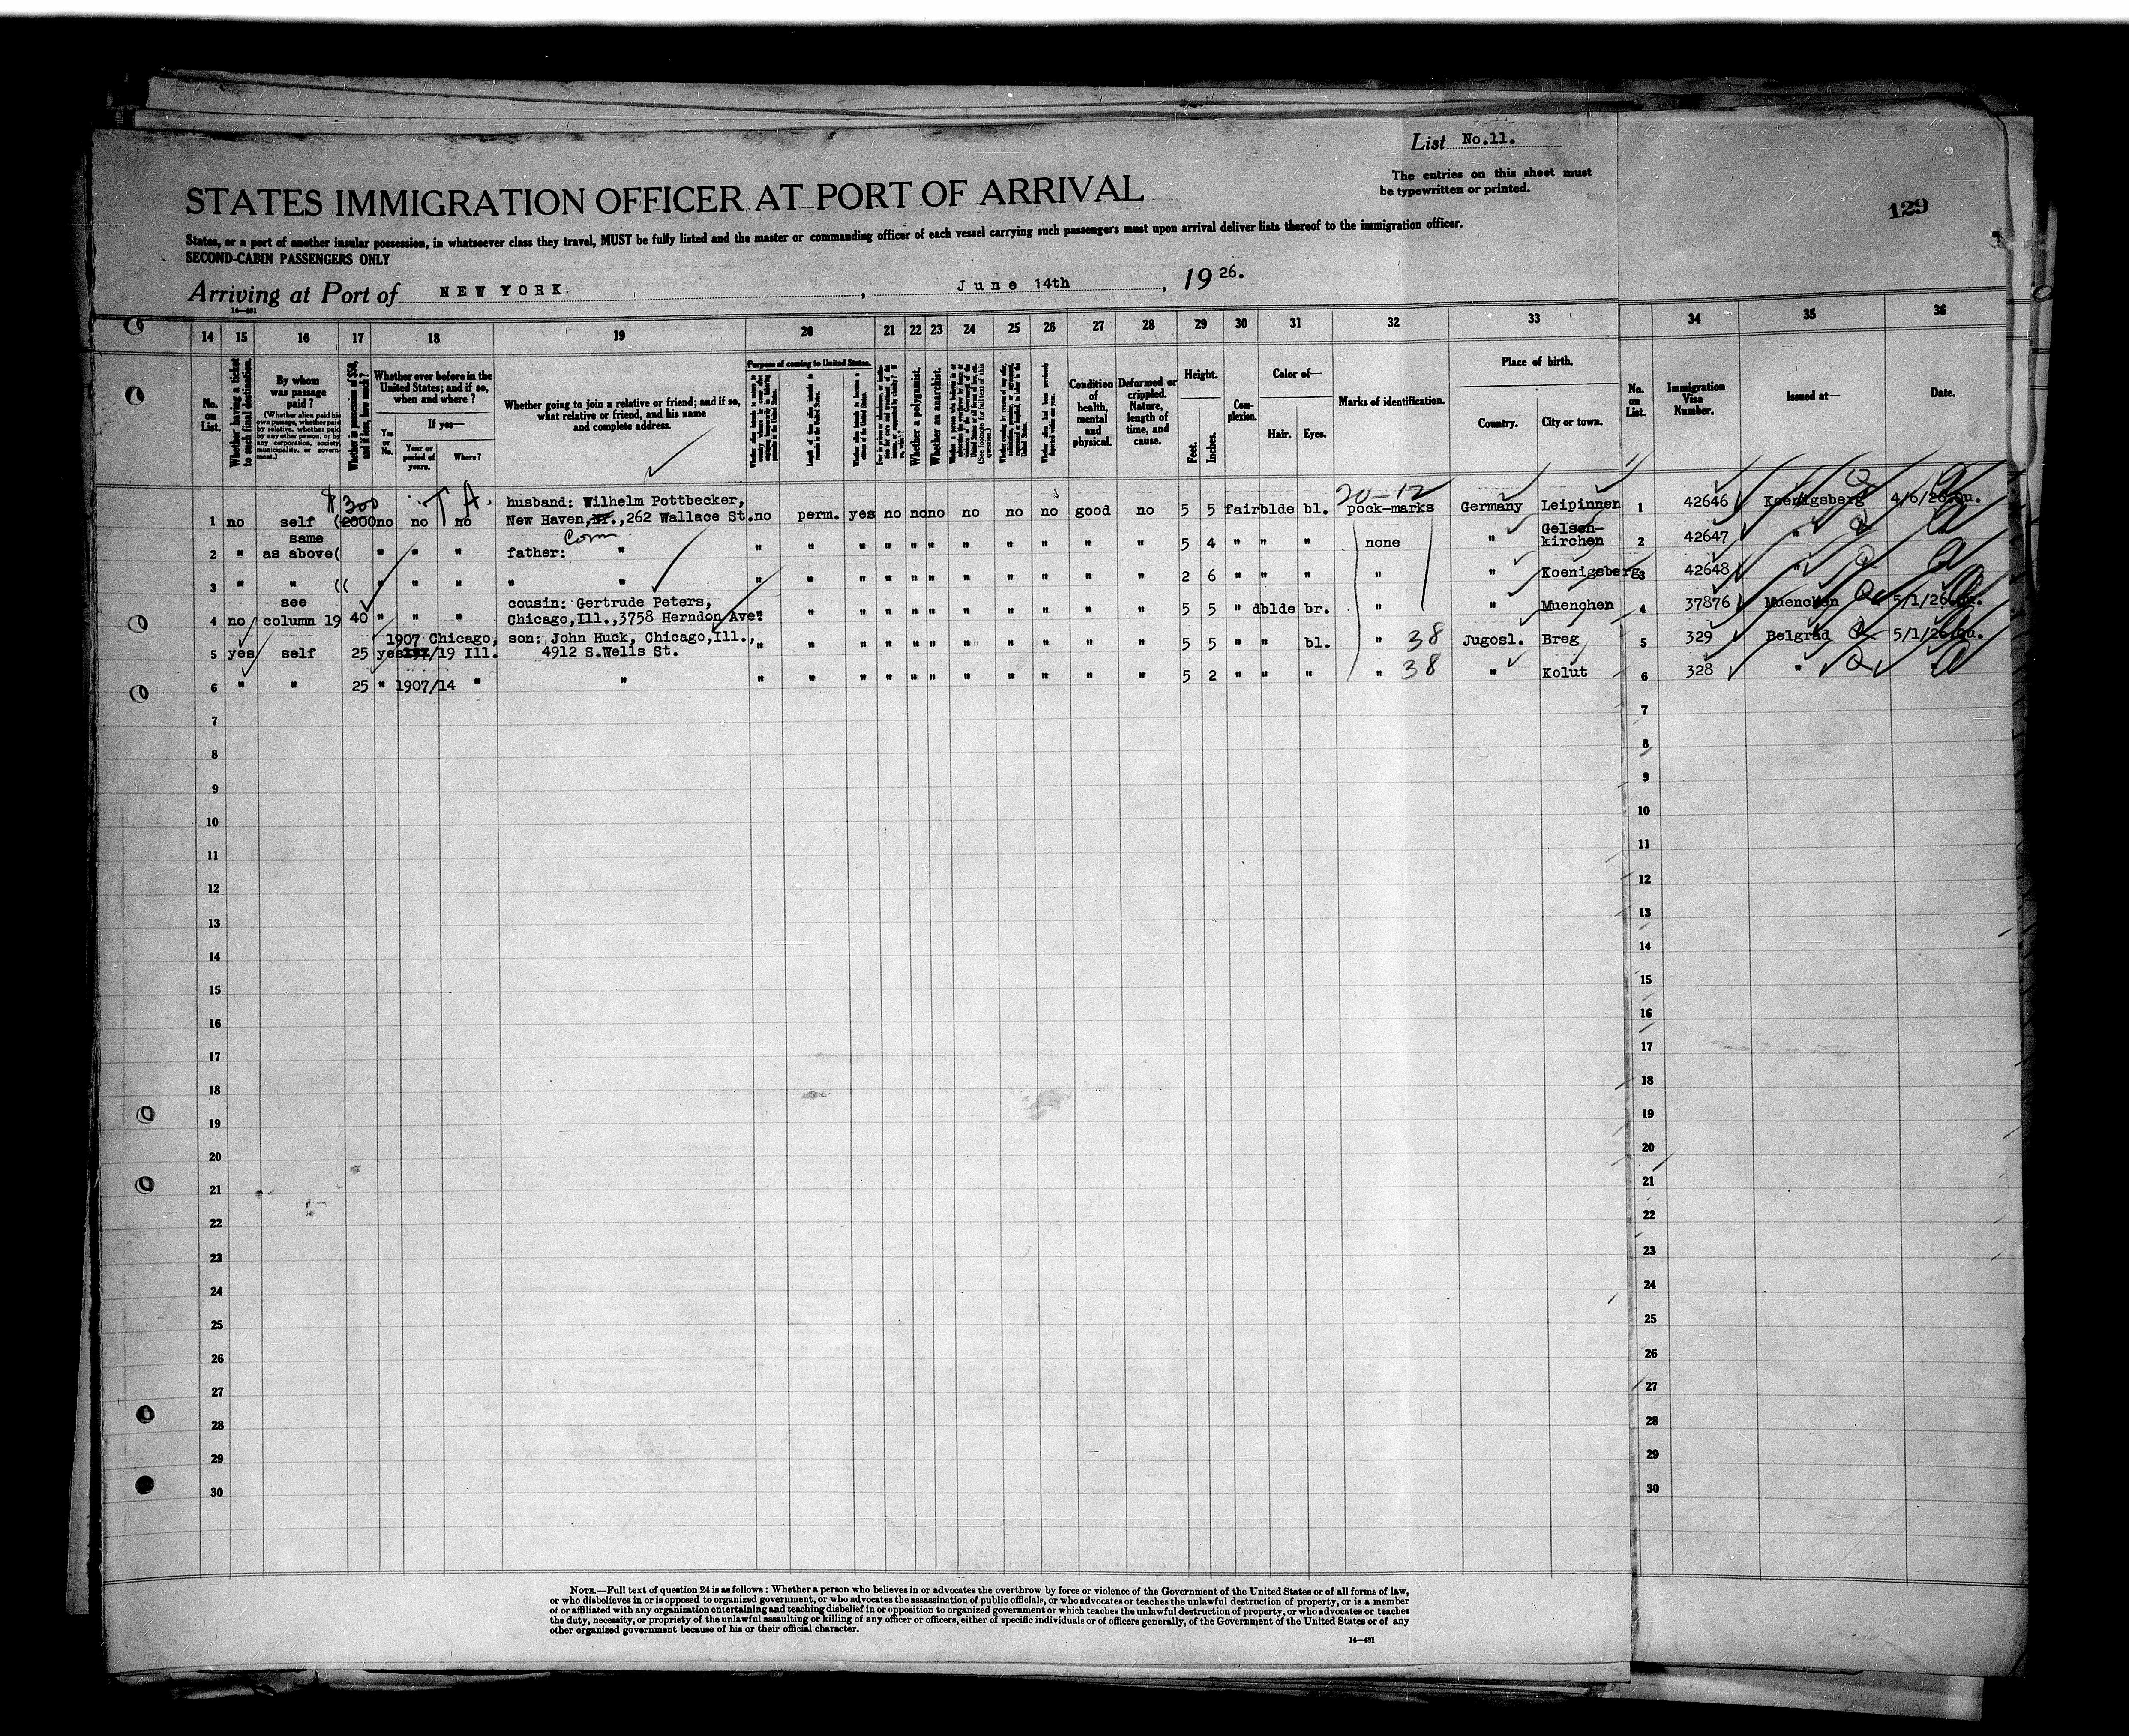 List No.11.
The entries on this sheet must
be typewritten or printed.
129
STATES IMMIGRATION OFFICER AT PORT OF ARRIVAL
States, or a port of another insular possession, in whatsoever class they travel, MUST be fully listed and the master or commanding officer of each vessel carrying such passengers must upon arrival deliver lists thereof to the immigration officer.
SECOND-CABIN PASSENGERS ONLY
Arriving at Port of NEW YORK, June 14th, 19 26.
14—481
14 15 16 17 18 19 20 21 22 23 24 25 26 27 28 29 30 31 32 33 34 35 36
No. on List.
Whether having a ticket to such final destination.
By whom was passage paid?
(Whether alien paid his own passage, whether paid by relative, whether paid by any other person, or by any corporation, society, municipality, or government.)
Whether in possession of $50, and if less, how much?
Whether ever before in the United States; and if so, when and where?
Yes or No.
If yes—
Year or period of years.
Where?
Whether going to join a relative or friend; and if so, what relative or friend, and his name and complete address.
Purpose of coming to United States.
Length of time alien intends to remain in the United States.
Whether alien intends to become a citizen of the United States.
Whether a polygamist.
Whether an anarchist.
Condition of health, mental and physical.
Deformed or crippled. Nature, length of time, and cause.
Height.
Feet.
Inches.
Complexion.
Color of—
Hair.
Eyes.
Marks of identification.
Place of birth.
Country.
City or town.
No. on List.
Immigration Visa Number.
Issued at—
Date.
$300 T A. husband: Wilhelm Pottbecker, 20-12
1 no self (2000 no no no New Haven, , 262 Wallace St. no perm. yes no no no no no no good no 5 5 fair blde bl. pock-marks Germany Leipinnen 1 42646 Koenigsberg 4/6/26 Qu.
same Conn Gelsen-
2 " as above( " " " father: " " " " " " " " " " " " 5 4 " " " none " kirchen 2 42647 "
3 " " (( " " " " " " " " " " " " " " " " 2 6 " " " " " Koenigsberg 3 42648 "
see cousin: Gertrude Peters,
4 no column 19 40 " " " Chicago,Ill.,3758 Herndon Ave. " " " " " " " " " " " 5 5 " dblde br. " " Muenchen 4 37876 Muenchen 5/1/26 Qu.
1907 Chicago, son: John Huck, Chicago,Ill.,
5 yes self 25 yes /19 Ill. 4912 S.Wells St. " " " " " " " " " " " 5 5 " " bl. " 38 Jugosl. Breg 5 329 Belgrad 5/1/26 Qu.
6 " " 25 " 1907/14 " " " " " " " " " " " " " 5 2 " " " " 38 " Kolut 6 328 "
7 7
8 8
9 9
10 10
11 11
12 12
13 13
14 14
15 15
16 16
17 17
18 18
19 19
20 20
21 21
22 22
23 23
24 24
25 25
26 26
27 27
28 28
29 29
30 30
NOTE.—Full text of question 24 is as follows: Whether a person who believes in or advocates the overthrow by force or violence of the Government of the United States or of all forms of law,
or who disbelieves in or is opposed to organized government, or who advocates the assassination of public officials, or who advocates or teaches the unlawful destruction of property, or is a member
of or affiliated with any organization entertaining and teaching disbelief in or opposition to organized government or which teaches the unlawful destruction of property, or who advocates or teaches
the duty, necessity, or propriety of the unlawful assaulting or killing of any officer or officers, either of specific individuals or of officers generally, of the Government of the United States or of any
other organized government because of his or their official character.
14—481